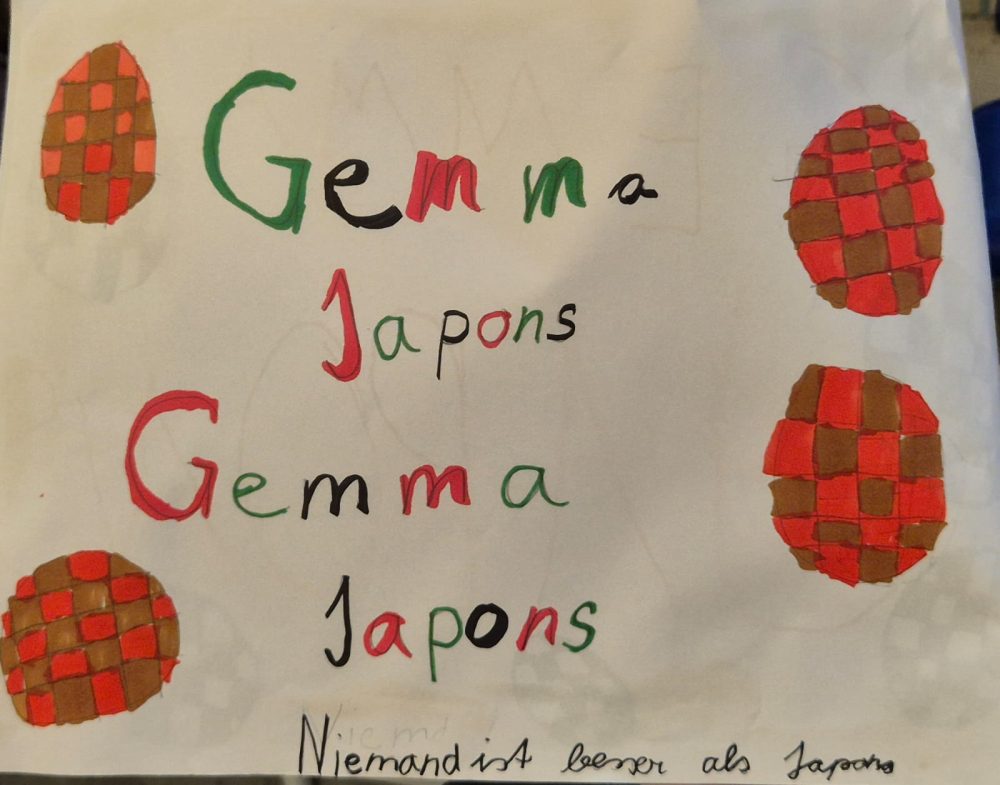 Gemma
Japons
Gemma
Japons
Niemand ist besser als Japons